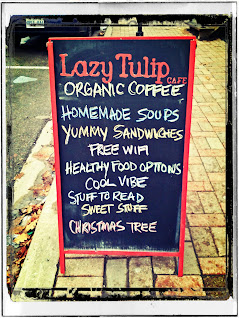 Lazy Tulip
CAFE
ORGANIC COFFEE
HOMEMADE SOUPS
YUMMY SANDWICHES
FREE WIFI
HEALTHY FOOD OPTIONS
COOL VIBE
STUFF TO READ
SWEET STUFF
CHRISTMAS TREE